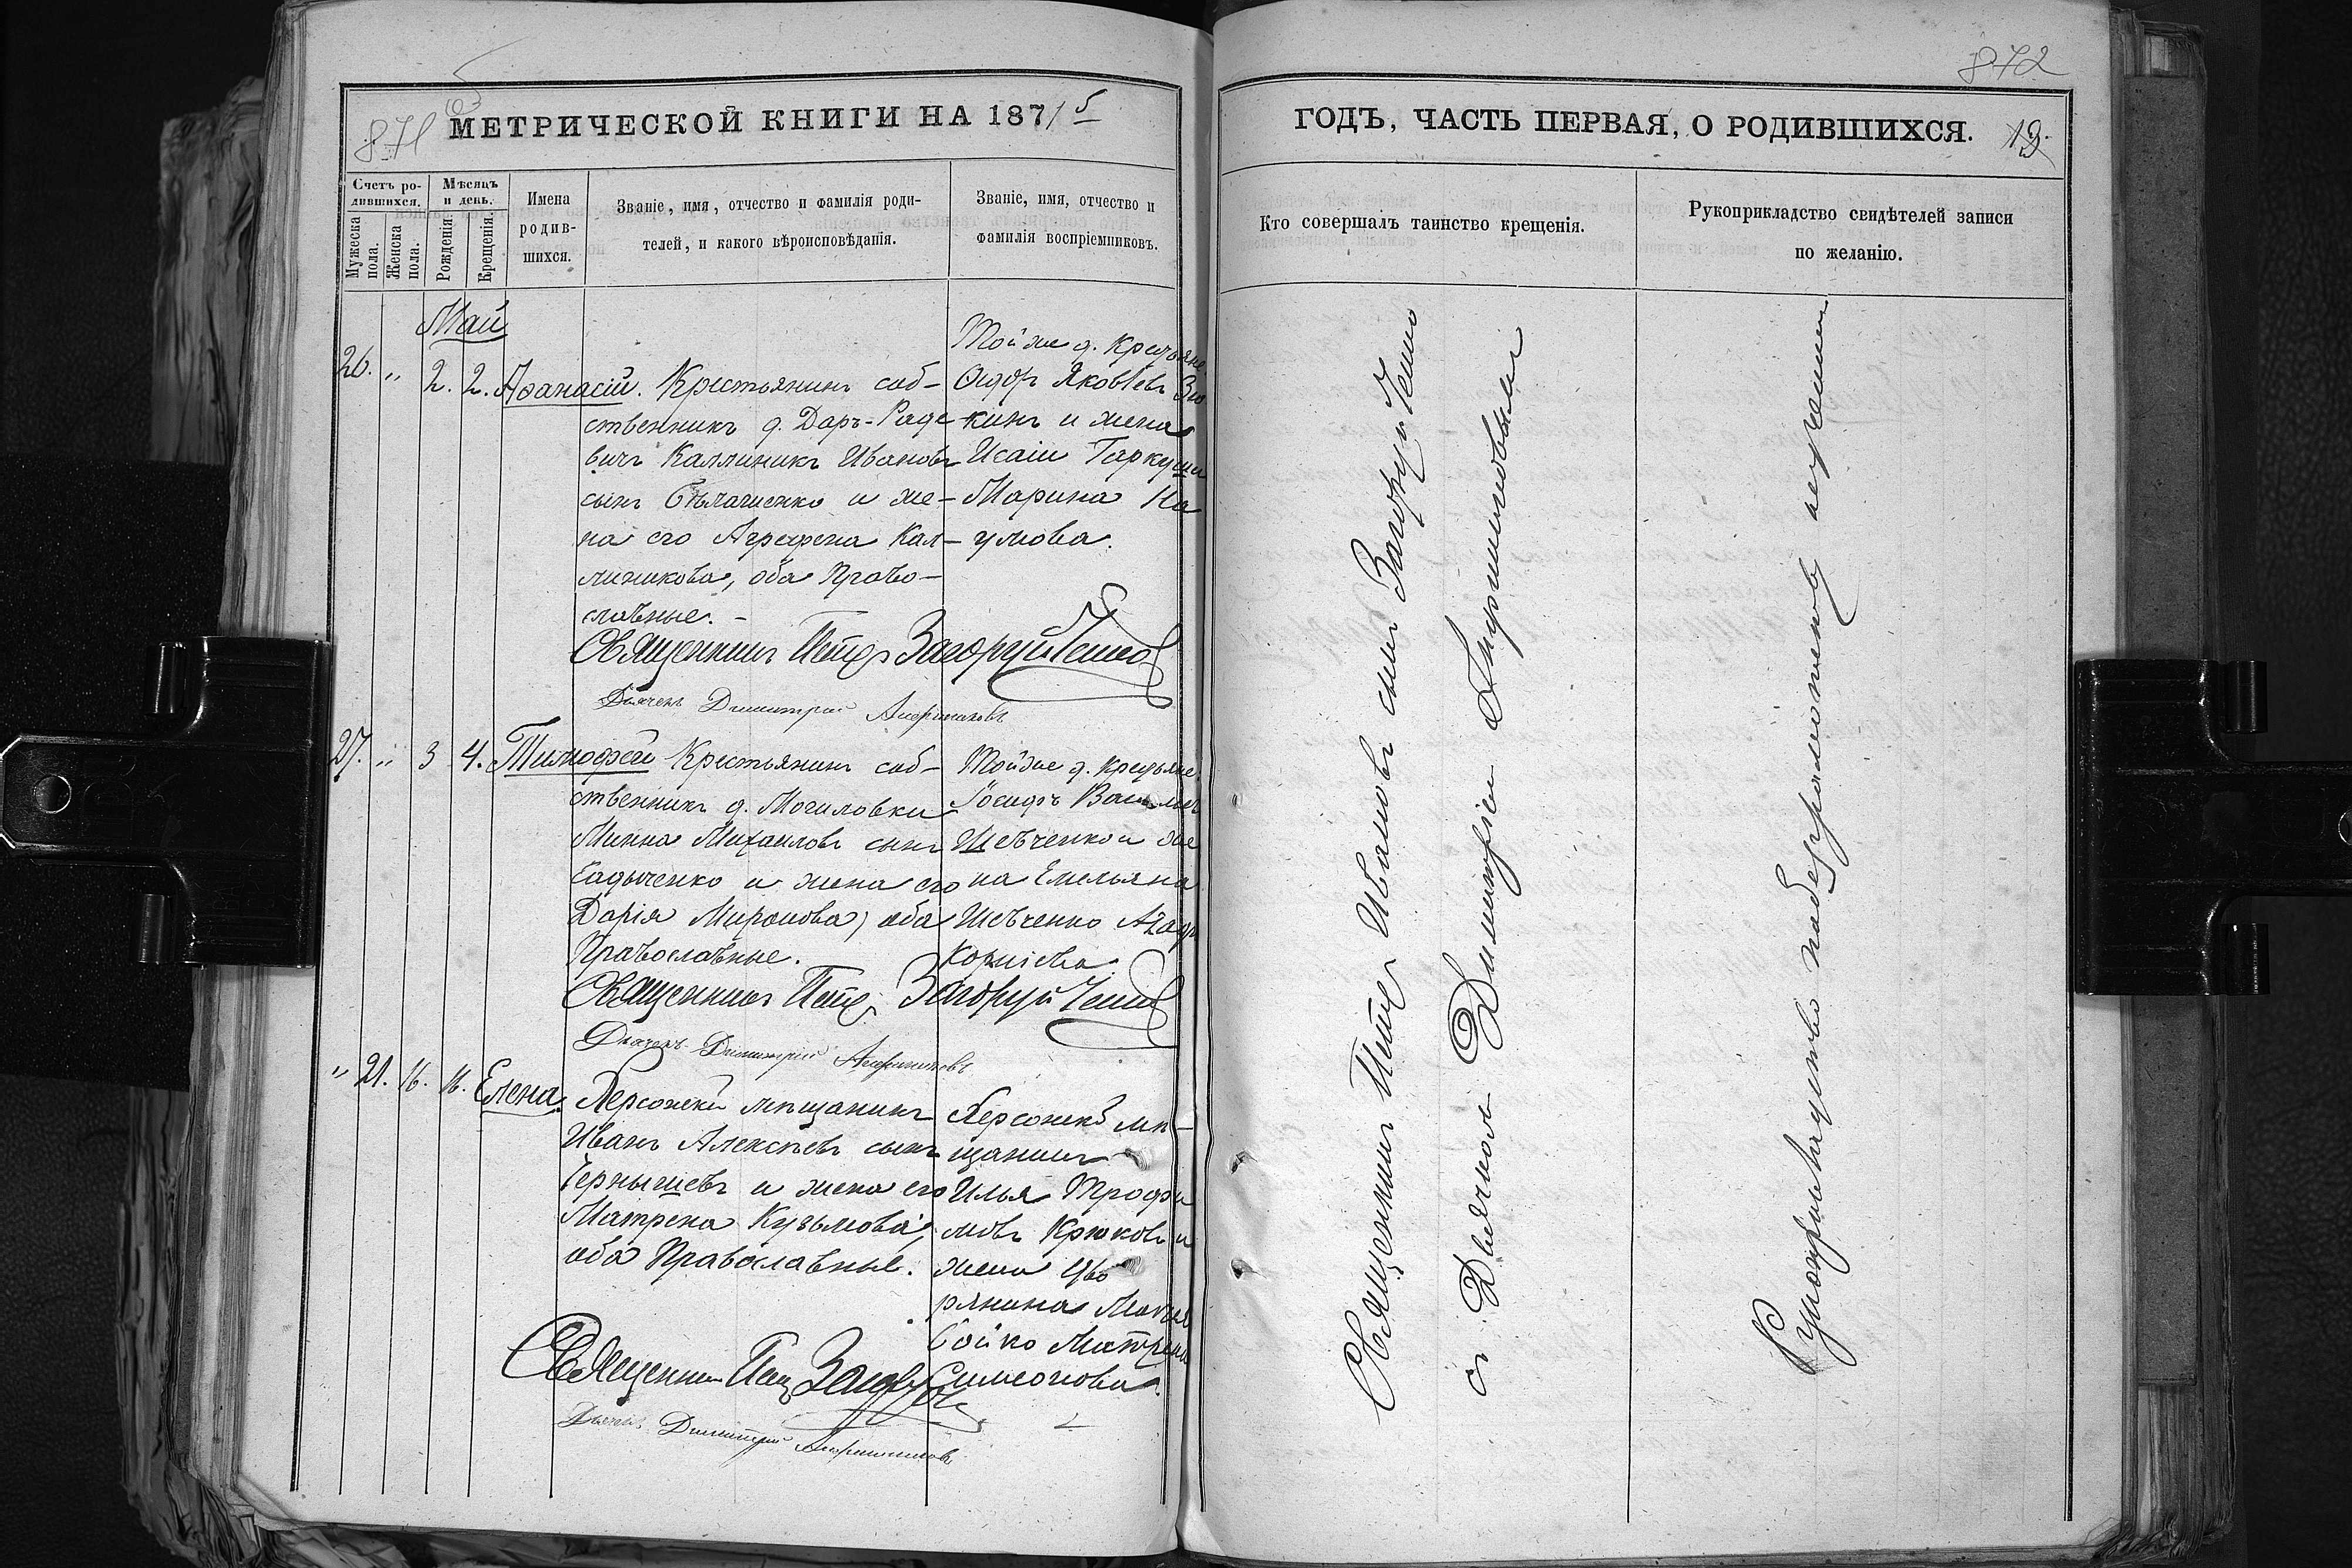 871
об
МЕТРИЧЕСКОЙ КНИГИ НА 1871 5
Счетъ ро-
дившихся.
Мужеска пола.
Женска пола.
Мѣсяцъ
и день.
Рожденія
Крещенія.
Имена
родив-
шихся.
Званіе, имя, отчество и фамилія роди-
телей, и какого вѣроисповѣданія.
Званіе, имя, отчество и
фамилія воспріемниковъ.
Май
26. „ 2. 2. Аѳанасій. Крестьянинъ соб-
ственникъ д. Даръ-Раде
вичъ Каллиникъ Ивановъ
сынъ и же-
на его Агрефена Кал-
линикова, оба Право-
славные. -
Тойже д.
Яковлевъ
кинъ и жена
Исаіи
Марина На
умова.
Священникъ Петръ Загоруйченко
Дьячекъ Димитрій
27. „ 3 4. Тимофей Крестьянинъ соб-
ственникъ д. Могиловки
Минна Михаиловъ сынъ
Гадыченко и жена его
Дарія Миронова, оба
Православные.
Тойже д.
Іосифъ
Шевченко и же
на Емельяна
Шевченко
Священникъ Петръ Загоруйченко
Дьячекъ Димитрій
„ 21. 16. 16. Елена. Херсонскій мѣщанинъ
Иванъ Алексѣевъ сынъ
Чернышевъ и жена его
Матрена Кузьмова,
оба Православные.
Херсонскій мѣ-
щанинъ
Илья Трофи
мовъ Крюковъ и
жена дво
рянина
Бойко Матрена
Симеонова.
Священникъ Петръ
Дьячекъ Димитрій
872
ГОДЪ, ЧАСТЬ ПЕРВАЯ, О РОДИВШИХСЯ.
Кто совершалъ таинство крещенія.
Рукоприкладство свидѣтелей записи
по желанію.
Священникъ Петръ Ивановъ сынъ Загоруйченко
съ Дьячкомъ Димитріемъ
Рукоприкладство